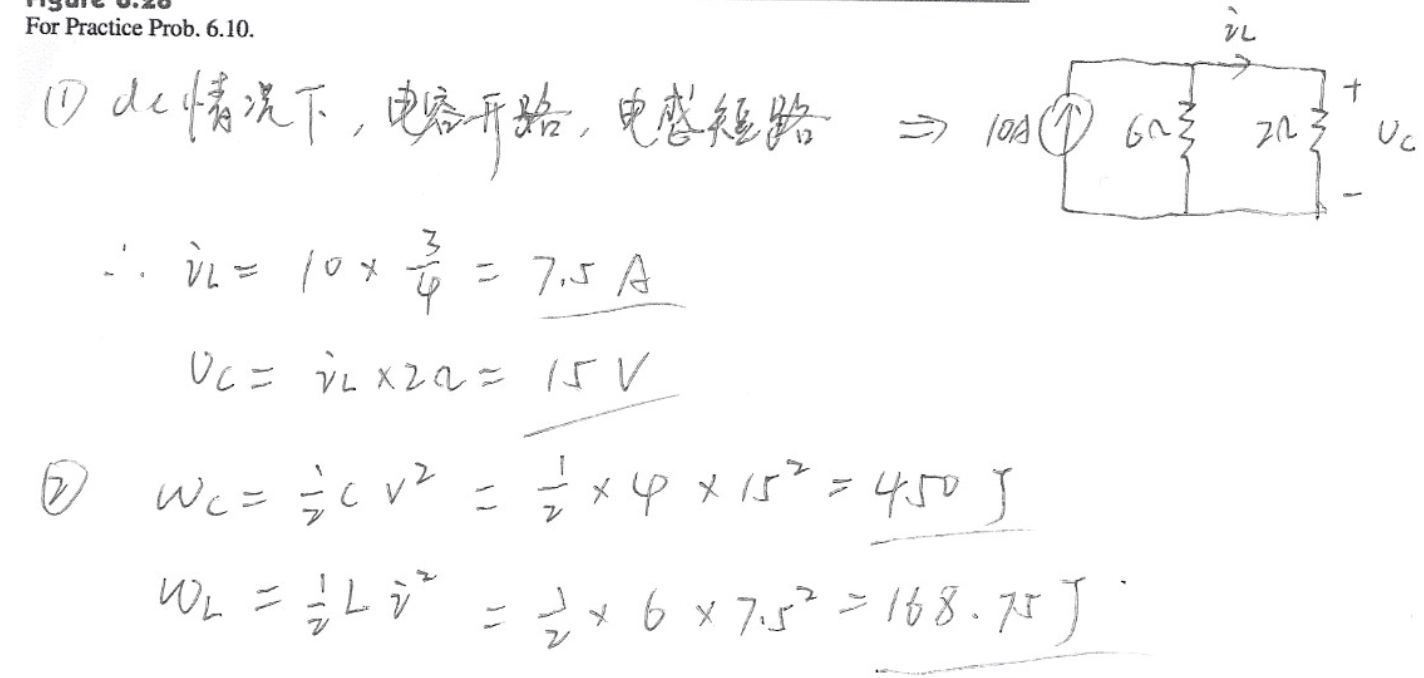 Figure 6.28
For Practice Prob. 6.10.
① dc情况下,电容开路,电感短路 ⇒
iL
10A 6Ω 2Ω + Uc -
∴ iL = 10 × 3/4 = 7.5 A
Uc = iL × 2Ω = 15 V
② Wc = 1/2 C V² = 1/2 × 4 × 15² = 450 J
WL = 1/2 L i² = 1/2 × 6 × 7.5² = 168.75 J